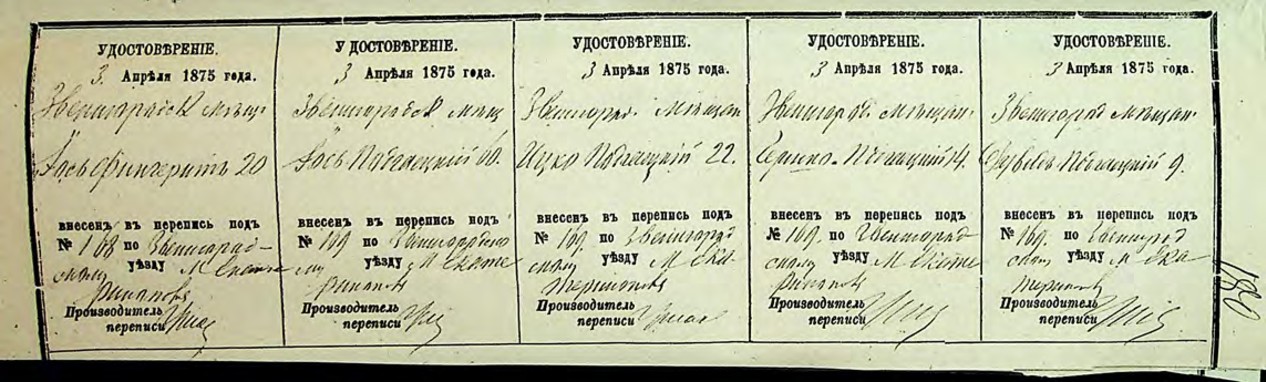 УДОСТОВѢРЕНІЕ.
3. Апрѣля 1875 года.
Звенигородск мѣщ.
Іось 20
внесенъ въ перепись подъ
№ 168 по Звенигород-
скому уѣзду М Екате
ринополь
Производитель
переписи
УДОСТОВѢРЕНІЕ.
3 Апрѣля 1875 года.
Звенигородск мѣщ
Іось Подгаецкій 60.
внесенъ въ перепись подъ
№ 169 по Звенигородско
му уѣзду М Екате
ринополь
Производитель
переписи
УДОСТОВѢРЕНІЕ.
3 Апрѣля 1875 года.
Звенигород. мѣщан
Ицко Подгаецкій 22.
внесенъ въ перепись подъ
№ 169. по Звенигород
скому уѣзду М Ека-
теринополь
Производитель
переписи
УДОСТОВѢРЕНІЕ.
3 Апрѣля 1875 года.
Звенигород. мѣщан.
Подгаецкій 14.
внесенъ въ перепись подъ
№ 169. по Звенигород
скому уѣзду М Екате
ринополь
Производитель
переписи
УДОСТОВѢРЕНІЕ.
3 Апрѣля 1875 года.
Звенигород мѣщан.
Подгаецкій 9.
внесенъ въ перепись подъ
№ 169. по Звенигород
ском уѣзду М Ека
теринополь
Производитель
переписи
180